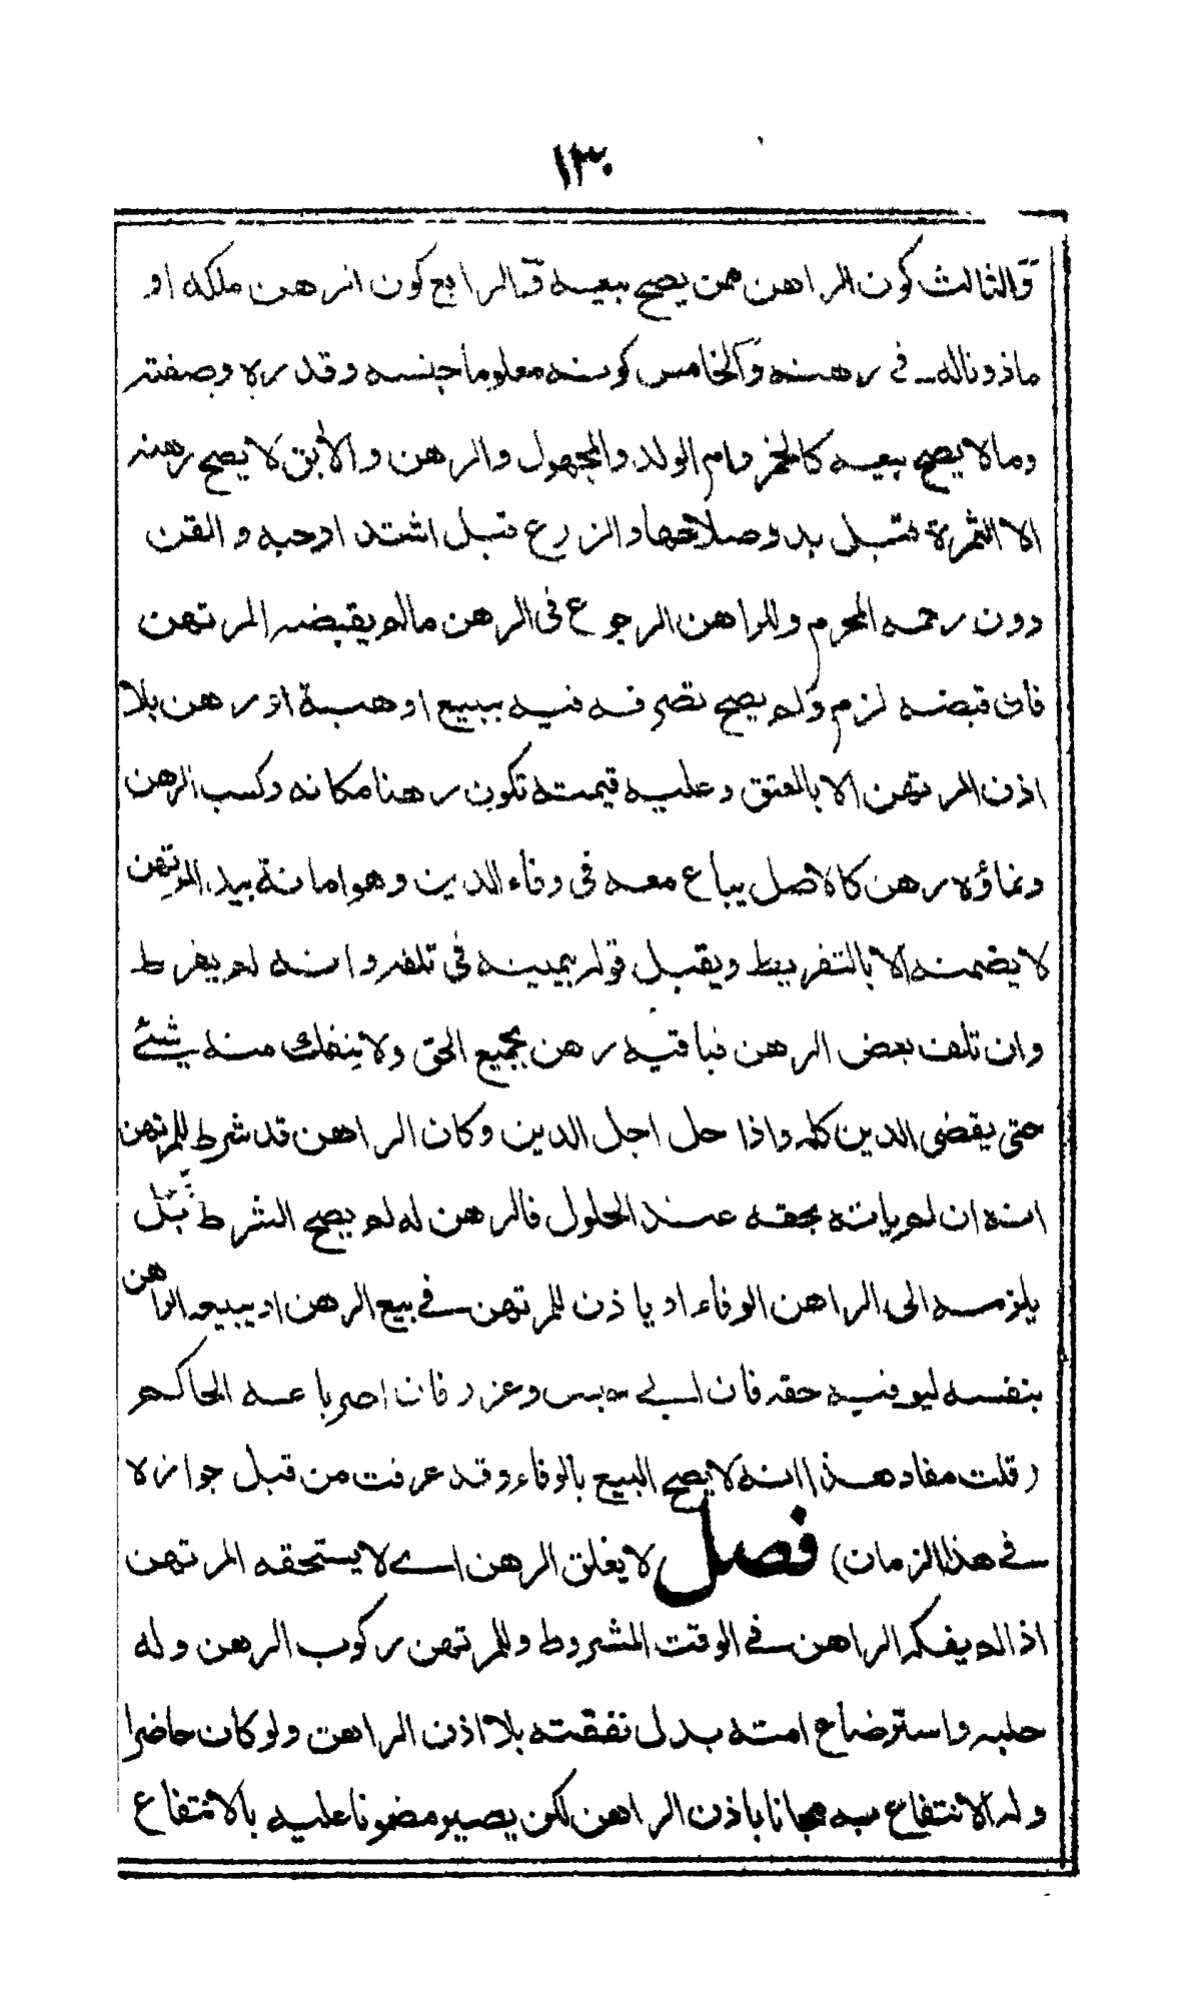 ١٣٠
والثالث كون الراهن ممن يصح بيعه والرابع كون الرهن ملكه او
ماذونا له في رهنه والخامس كونه معلوما جنسه وقدره وصفته
وما لا يصح بيعه كالخمر وام الولد والمجهول والرهن والآبق لا يصح رهنه
الا الثمرة قبل بدو صلاحها والزرع قبل اشتداد حبه والقن
دون رحمه المحرم وللراهن الرجوع فى الرهن مالم يقبضه المرتهن
فان قبضه لزم ولم يصح تصرفه فيه ببيع او هبة او رهن بلا
اذن المرتهن الا بالعتق وعليه قيمته تكون رهنا مكانه وكسب الرهن
ونماؤه رهن كالاصل يباع معه فى وفاء الدين وهو امانة بيد المرتهن
لا يضمنه الا بالتفريط ويقبل قوله بيمينه فى تلفه وانه لم يفرط
وان تلف بعض الرهن فباقيه رهن بجميع الحق ولا ينفك منه شئ
حتى يقضى الدين كله واذا حل اجل الدين وكان الراهن قد شرط للمرتهن
انه ان لم ياته بحقه عند الحلول فالرهن له لم يصح الشرط بل
يلزمه الى الراهن الوفاء او ياذن للمرتهن في بيع الرهن او يبيعه الراهن
بنفسه ليوفيه حقه فان ابى حبس وعزر فان اصر باعه الحاكم
(قلت مفاد هذا انه لا يصح البيع بالوفاء وقد عرفت من قبل جوازه
في هذا الزمان) فصل لا يغلق الرهن اے لا يستحقه المرتهن
اذا لم يفكه الراهن في الوقت المشروط وللمرتهن ركوب الرهن وله
حلبه واسترضاع امته بدل نفقته بلا اذن الراهن ولو كان حاضرا
وله الانتفاع به مجانا باذن الراهن لكن يصير مضمونا عليه بالانتفاع